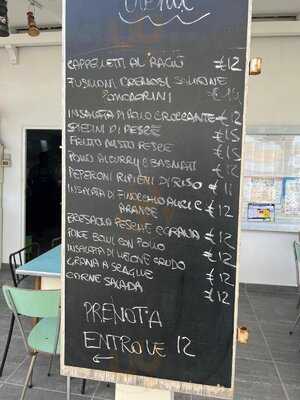 Menu
CAPPELLETTI AL RAGÙ €12
FUSILLONI CREMOSI SALMONE
POMODORINI
INSALATA DI POLLO CROCCANTE €12
SPIEDINI DI PESCE €15
FRITTO MISTO PESCE €15
POLLO AL CURRY E BASMATI €12
PEPERONI RIPIENI DI RISO €11
INSALATA DI FINOCCHIO
ARANCE €12
BRESAOLA PESCHE E GRANA €12
POKE BOWL CON POLLO €12
INSALATA DI CRUDO €12
GRANA A SCAGLIE €12
CARNE SALADA €12
PRENOTA
ENTRO LE 12